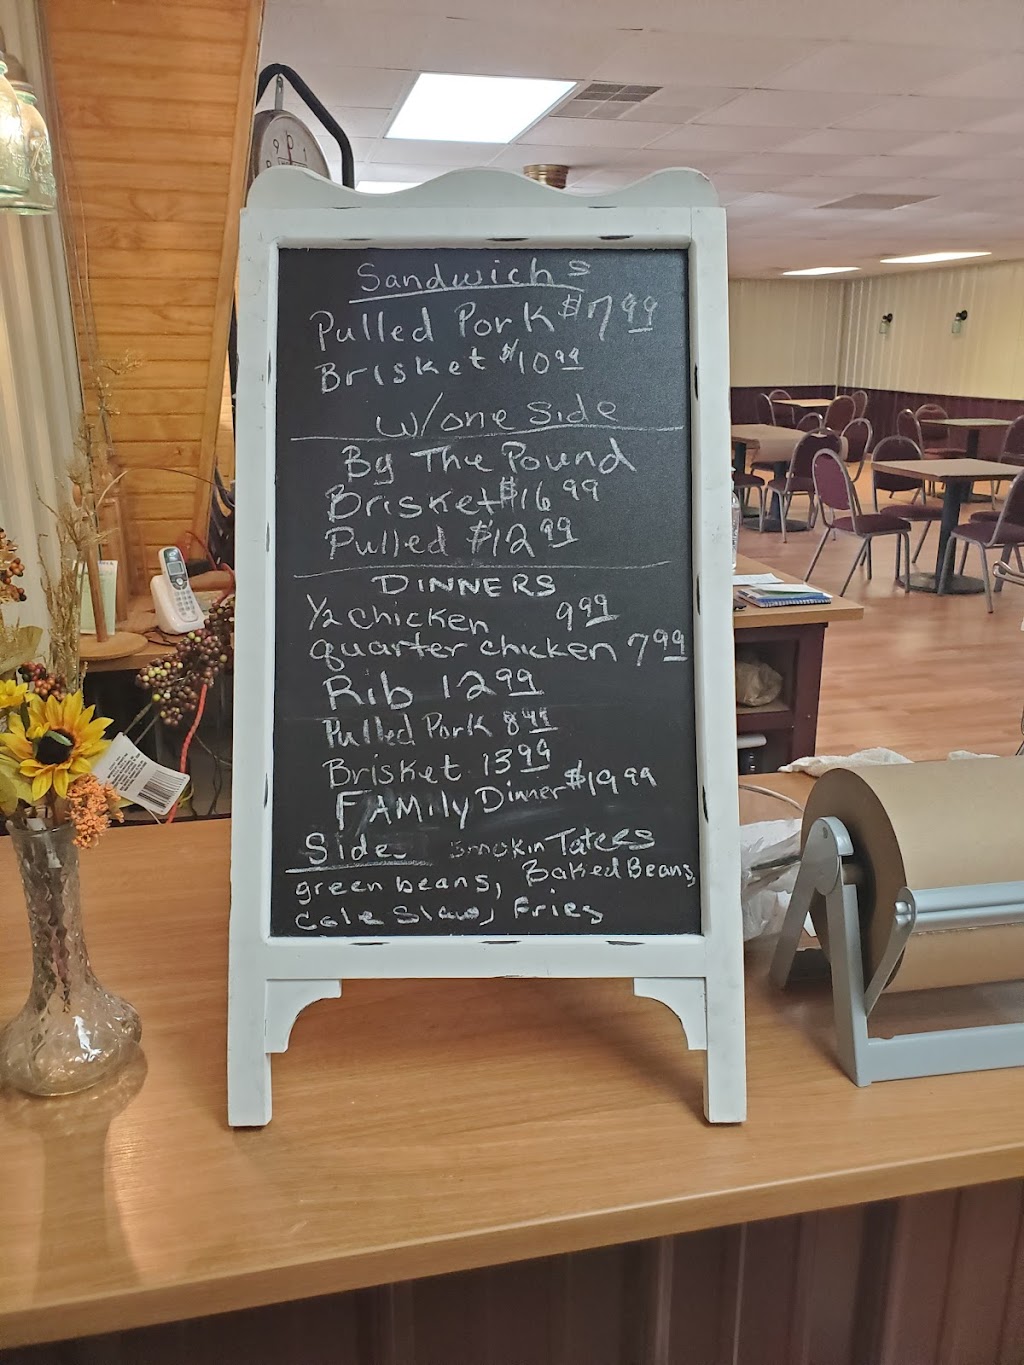 Sandwichs
Pulled Pork $7.99
Brisket $10.99
w/one Side
By The Pound
Brisket $16.99
Pulled $12.99
DINNERS
1/2 chicken 9.99
quarter chicken 7.99
Rib 12.99
Pulled Pork 8.99
Brisket 13.99
FAMILY Dinner $19.99
Side Smokin Taters
green beans, Baked Beans,
Cole Slaw, Fries